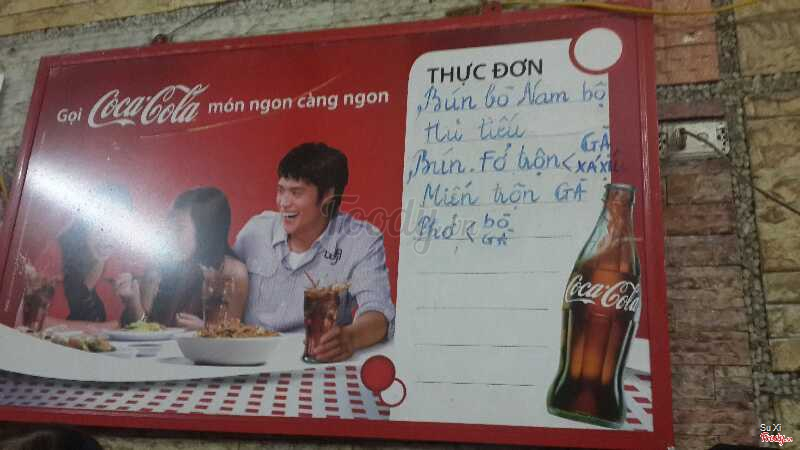 Gọi Coca-Cola món ngon càng ngon
THỰC ĐƠN
Bún bò Nam bộ
Hủ tiếu
Bún. Fở trộn < GÀ
XÁ XÍU
Miến trộn GÀ
Phở < bò
GÀ
Coca-Cola
Foody.vn
Su Xi
Foody.vn